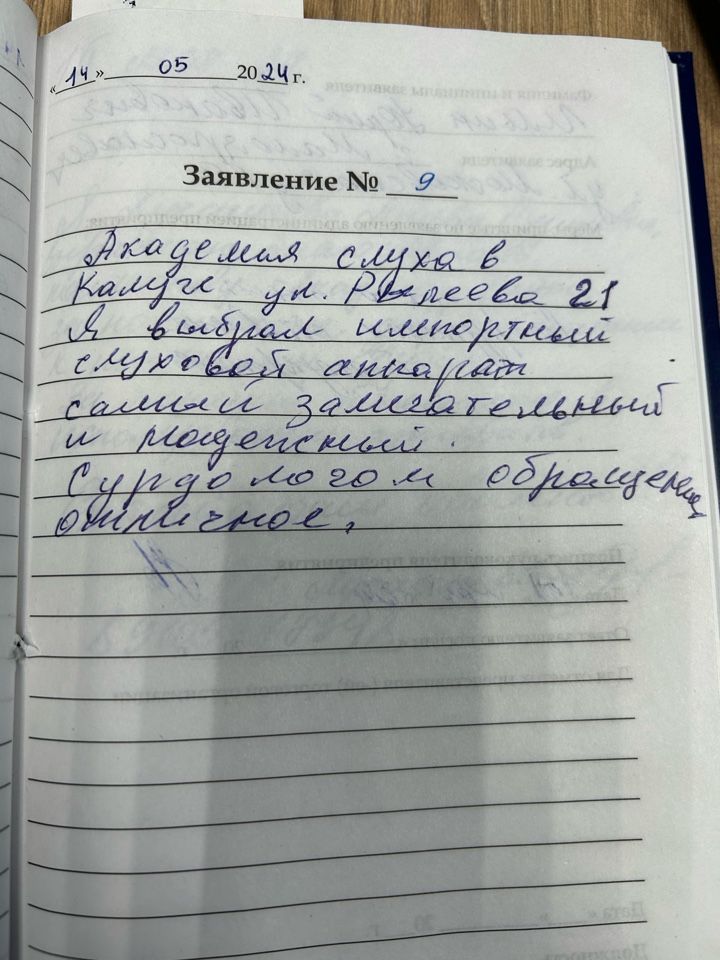 «14» 05 2024 г.
Заявление № 9
Академия слуха в
Калуге ул. Рылеева 21
Я выбрал импортный
слуховой аппарат
самый замечательный
и надежный.
Сурдологом обращение
отличное.